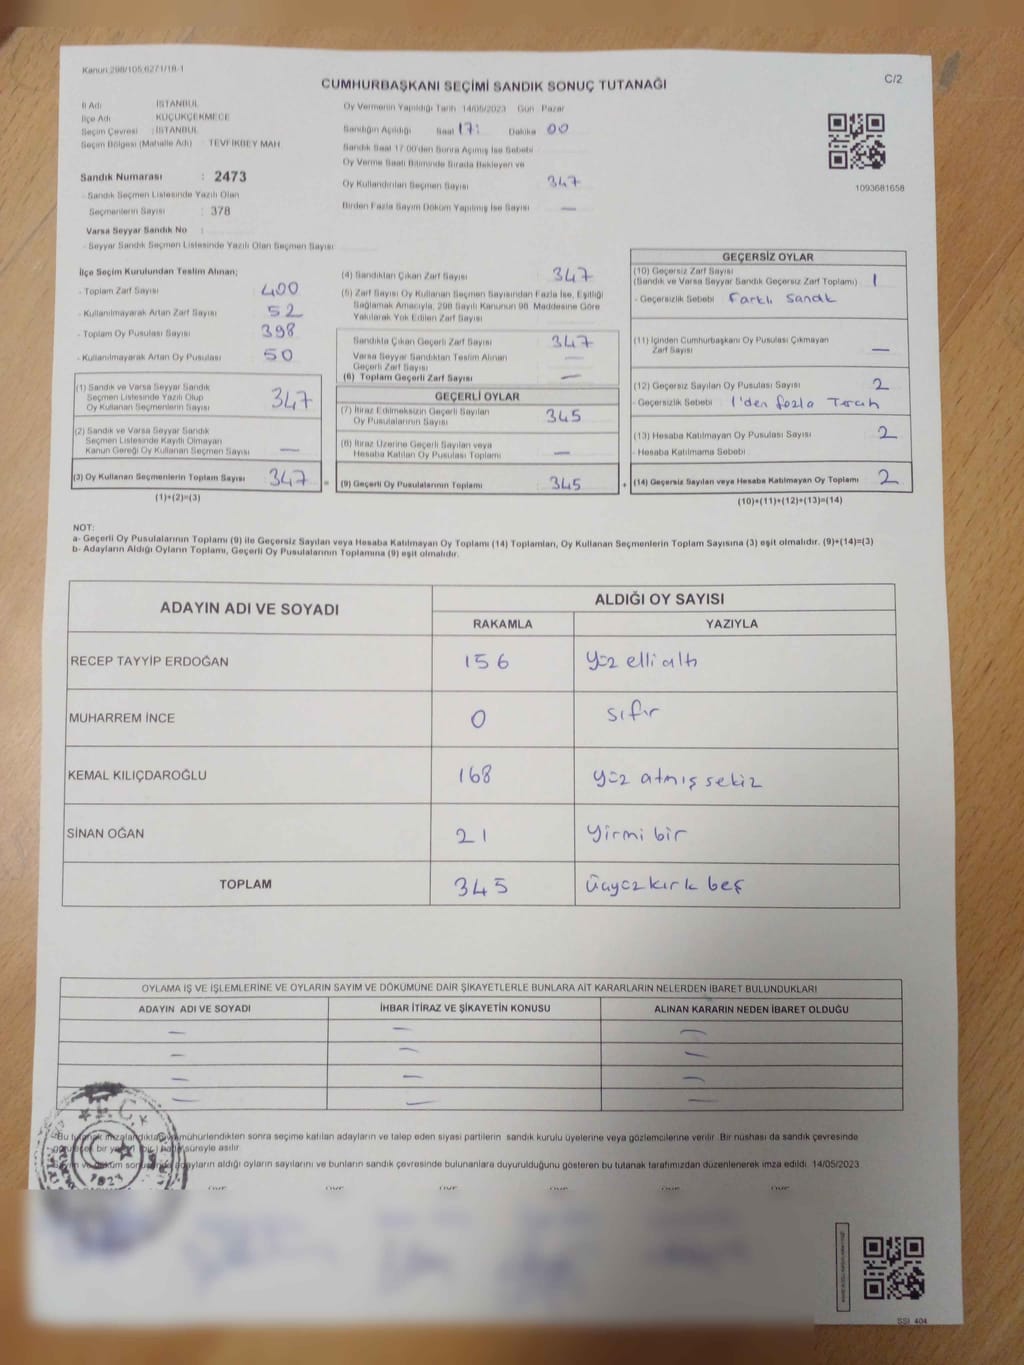 Kanun 298/105,6271/18-1
C/2
CUMHURBAŞKANI SEÇİMİ SANDIK SONUÇ TUTANAĞI
İl Adı : İSTANBUL
İlçe Adı : KÜÇÜKÇEKMECE
Seçim Çevresi : İSTANBUL
Seçim Bölgesi (Mahalle Adı) : TEVFİKBEY MAH
Sandık Numarası : 2473
- Sandık Seçmen Listesinde Yazılı Olan
Seçmenlerin Sayısı : 378
Varsa Seyyar Sandık No :
- Seyyar Sandık Seçmen Listesinde Yazılı Olan Seçmen Sayısı
Oy Vermenin Yapıldığı Tarih 14/05/2023 Gün Pazar
Sandığın Açıldığı Saat 17: Dakika 00
Sandık Saat 17.00'den Sonra Açılmış İse Sebebi
Oy Verme Saati Bitiminde Sırada Bekleyen ve
Oy Kullandırılan Seçmen Sayısı 347
Birden Fazla Sayım Döküm Yapılmış İse Sayısı —
1093681658
İlçe Seçim Kurulundan Teslim Alınan;
- Toplam Zarf Sayısı : 400
- Kullanılmayarak Artan Zarf Sayısı : 52
- Toplam Oy Pusulası Sayısı : 398
- Kullanılmayarak Artan Oy Pusulası : 50
(1) Sandık ve Varsa Seyyar Sandık
Seçmen Listesinde Yazılı Olup
Oy Kullanan Seçmenlerin Sayısı 347
(2) Sandık ve Varsa Seyyar Sandık
Seçmen Listesinde Kayıtlı Olmayan
Kanun Gereği Oy Kullanan Seçmen Sayısı —
(3) Oy Kullanan Seçmenlerin Toplam Sayısı 347
(1)+(2)=(3)
(4) Sandıktan Çıkan Zarf Sayısı : 347
(5) Zarf Sayısı Oy Kullanan Seçmen Sayısından Fazla İse, Eşitliği
Sağlamak Amacıyla, 298 Sayılı Kanunun 98. Maddesine Göre
Yakılarak Yok Edilen Zarf Sayısı
Sandıkta Çıkan Geçerli Zarf Sayısı : 347
Varsa Seyyar Sandıktan Teslim Alınan
Geçerli Zarf Sayısı —
(6) Toplam Geçerli Zarf Sayısı —
GEÇERLİ OYLAR
(7) İtiraz Edilmeksizin Geçerli Sayılan
Oy Pusulalarının Sayısı 345
(8) İtiraz Üzerine Geçerli Sayılan veya
Hesaba Katılan Oy Pusulası Toplamı —
= (9) Geçerli Oy Pusulalarının Toplamı 345 +
GEÇERSİZ OYLAR
(10) Geçersiz Zarf Sayısı
(Sandık ve Varsa Seyyar Sandık Geçersiz Zarf Toplamı) 1
- Geçersizlik Sebebi : Farklı Sandık
(11) İçinden Cumhurbaşkanı Oy Pusulası Çıkmayan
Zarf Sayısı —
(12) Geçersiz Sayılan Oy Pusulası Sayısı 2
- Geçersizlik Sebebi : 1'den fazla Tercih
(13) Hesaba Katılmayan Oy Pusulası Sayısı 2
- Hesaba Katılmama Sebebi
(14) Geçersiz Sayılan veya Hesaba Katılmayan Oy Toplamı 2
(10)+(11)+(12)+(13)=(14)
NOT:
a- Geçerli Oy Pusulalarının Toplamı (9) ile Geçersiz Sayılan veya Hesaba Katılmayan Oy Toplamı (14) Toplamları, Oy Kullanan Seçmenlerin Toplam Sayısına (3) eşit olmalıdır. (9)+(14)=(3)
b- Adayların Aldığı Oyların Toplamı, Geçerli Oy Pusulalarının Toplamına (9) eşit olmalıdır.
ADAYIN ADI VE SOYADI ALDIĞI OY SAYISI
RAKAMLA YAZIYLA
RECEP TAYYİP ERDOĞAN 156 yüz elli altı
MUHARREM İNCE 0 sıfır
KEMAL KILIÇDAROĞLU 168 yüz atmış sekiz
SİNAN OĞAN 21 yirmi bir
TOPLAM 345 üçyüz kırk beş
OYLAMA İŞ VE İŞLEMLERİNE VE OYLARIN SAYIM VE DÖKÜMÜNE DAİR ŞİKAYETLERLE BUNLARA AİT KARARLARIN NELERDEN İBARET BULUNDUKLARI
ADAYIN ADI VE SOYADI İHBAR İTİRAZ VE ŞİKAYETİN KONUSU ALINAN KARARIN NEDEN İBARET OLDUĞU
— — —
— — —
— — —
— — —
T.C.
1923
Bu tutanak imzalandıktan ve mühürlendikten sonra seçime katılan adayların ve talep eden siyasi partilerin sandık kurulu üyelerine veya gözlemcilerine verilir. Bir nüshası da sandık çevresinde
süreyle asılır.
adayların aldığı oyların sayılarını ve bunların sandık çevresinde bulunanlara duyurulduğunu gösteren bu tutanak tarafımızdan düzenlenerek imza edildi. 14/05/2023
SSI 404